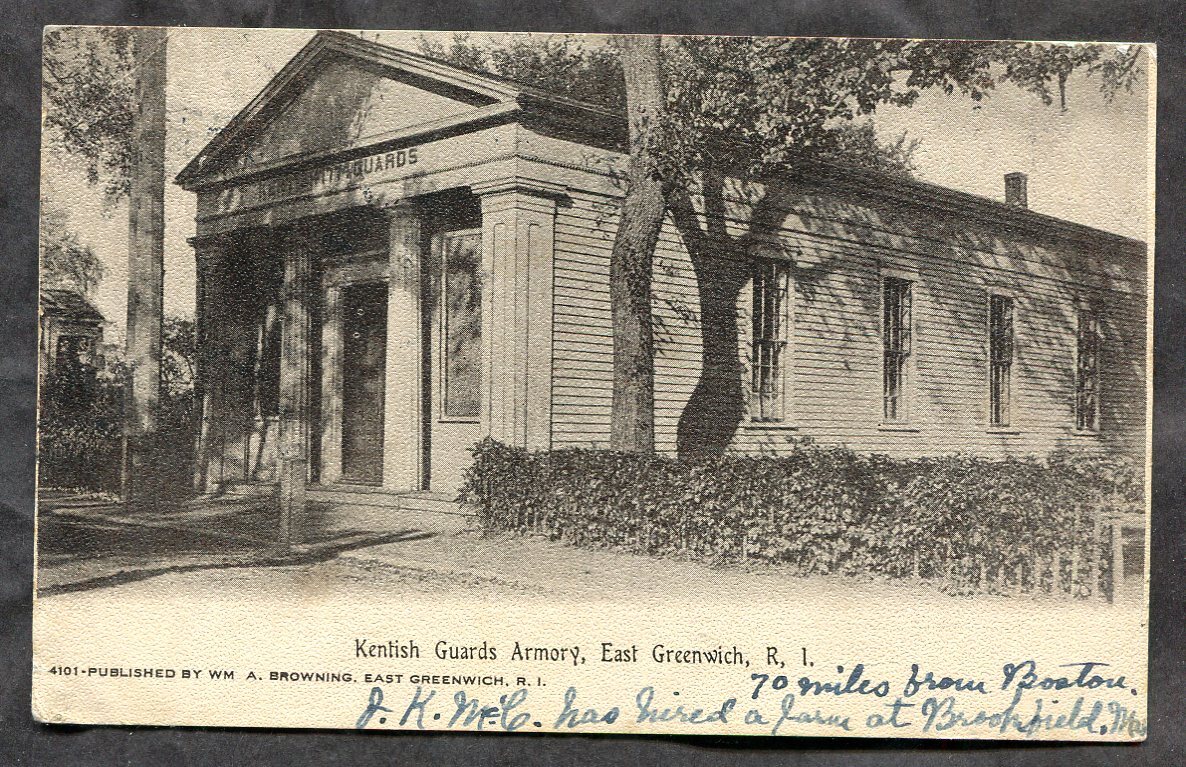 GUARDS
Kentish Guards Armory, East Greenwich, R. I.
4101-PUBLISHED BY WM A. BROWNING. EAST GREENWICH, R. I.
70 miles from Boston.
J. K. McC. has hired a farm at Brookfield, Mas